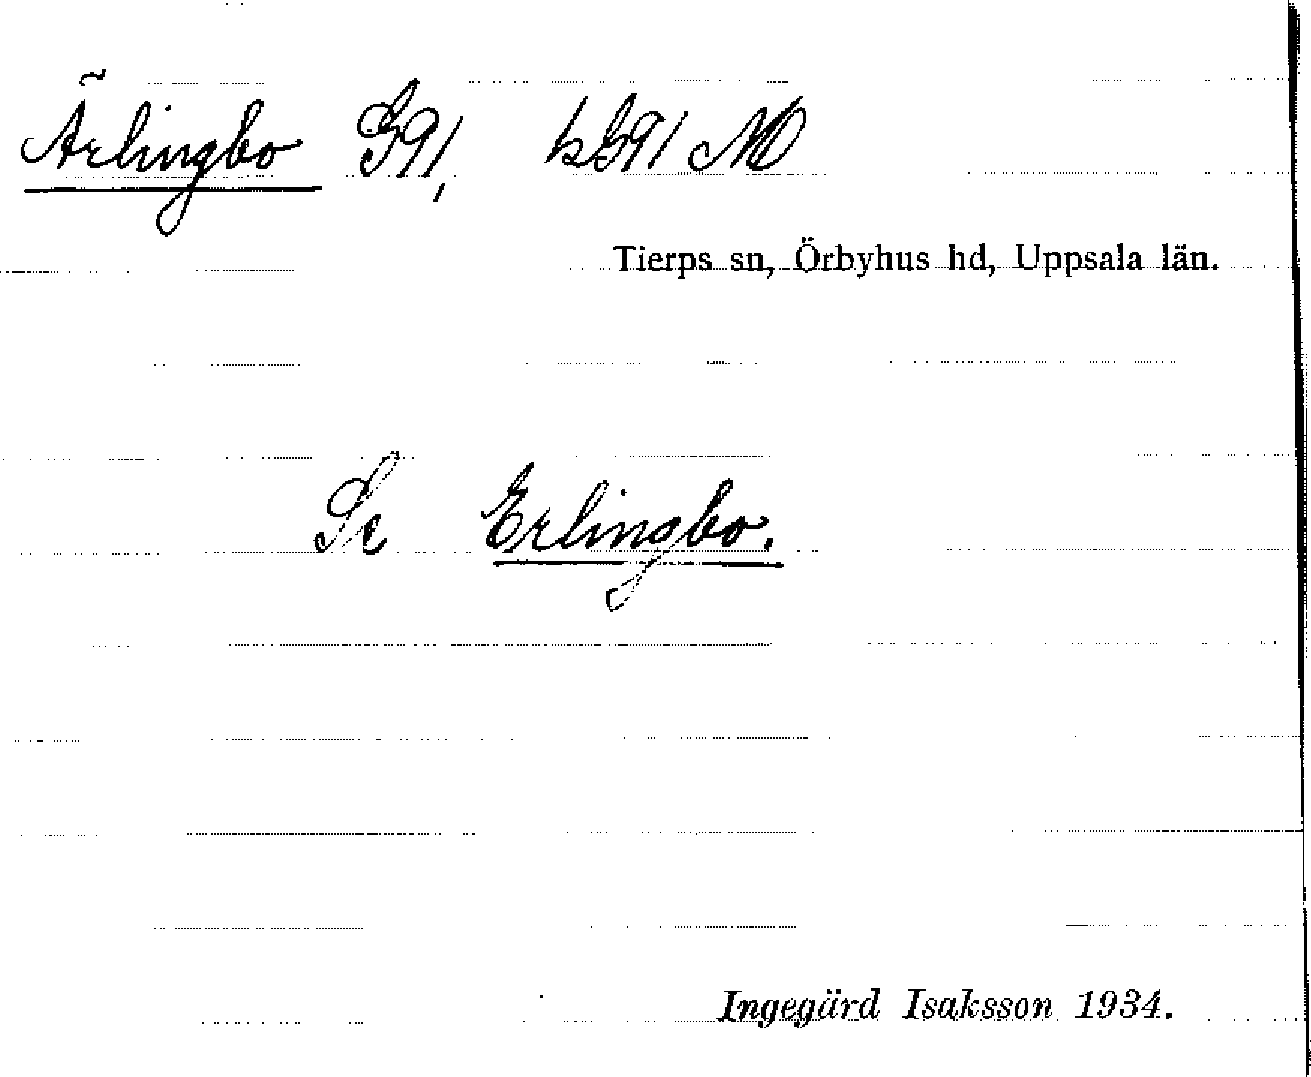 Ärlingbo G91, kG91 NO
Tierps sn, Örbyhus hd, Uppsala län.
Se Erlingbo.
Ingegärd Isaksson 1934.